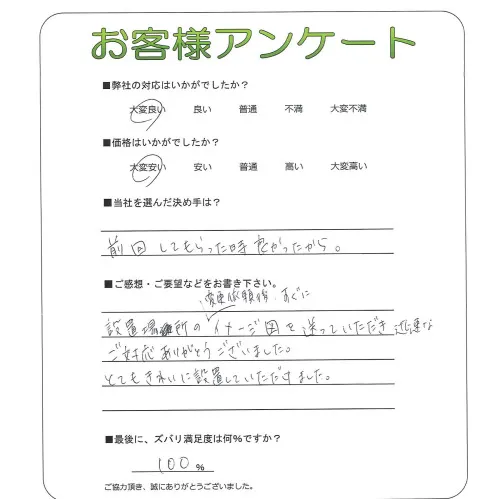 お客様アンケート
■弊社の対応はいかがでしたか？
大変良い 良い 普通 不満 大変不満
■価格はいかがでしたか？
大変安い 安い 普通 高い 大変高い
■当社を選んだ決め手は？
前回してもらった時良かったから。
■ご感想・ご要望などをお書き下さい。
変更依頼後、すぐに
設置場所のイメージ図を送っていただき迅速な
ご対応ありがとうございました。
とてもきれいに設置していただけました。
■最後に、ズバリ満足度は何％ですか？
100 %
ご協力頂き、誠にありがとうございました。